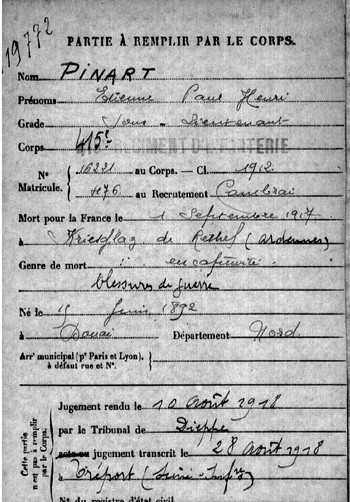 19772
PARTIE À REMPLIR PAR LE CORPS.
Nom PINART
Prénoms Etienne Paul Henri
Grade Sous-Lieutenant
Corps 415e RÉGIMENT D'INFANTERIE
N° 16221 au Corps. — Cl. 1912
Matricule. 1176 au Recrutement Cambrai
Mort pour la France le 1 Septembre 1917
à de Rethel (Ardennes)
Genre de mort en captivité
blessures de guerre
Né le Juin 1892
à Douai Département Nord
Arrt municipal (pr Paris et Lyon),
à défaut rue et N°.
Cette partie
n'est pas à remplir
par le Corps.
Jugement rendu le 10 Août 1918
par le Tribunal de Dieppe
acte ou jugement transcrit le 28 Août 1918
à Tréport (Seine-Infre)
N° du registre d'état civil